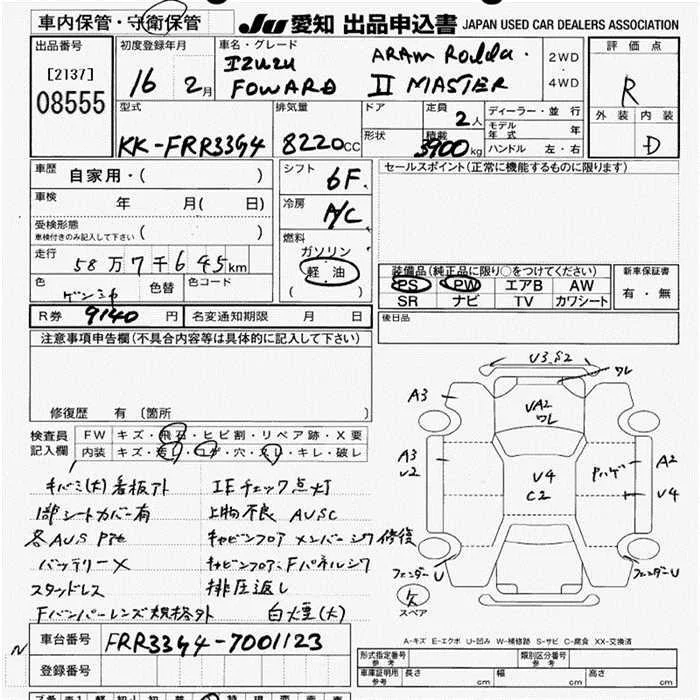 車内保管・守衛保管 JU 愛知 出品申込書 JAPAN USED CAR DEALERS ASSOCIATION
出品番号
[2137]
08555
初度登録年月
16 2月
車名・グレード
IZUZU
FOWARD II MASTER
2WD
・
4WD
評価点
R
外装 内装
D
型式
KK-FRR33G4
排気量
8220CC
ドア
形状
定員
2人
積載
3900kg
ディーラー・並行
モデル年式 年
ハンドル 左・右
車歴
自家用・( )
車検
年 月( 日)
受検形態
車検付きのみ記入して下さい ( )
走行
58万7千645km
色
色替
色コード
シフト
6F
冷房
A/C
燃料
ガソリン
軽油
( )
セールスポイント(正常に機能するものに限ります)
装備品(純正品に限り○をつけてください)
PS PW エアB AW
SR ナビ TV カワシート
新車保証書
有・無
R券 9140円 名変通知期限 月 日
後日品
注意事項申告欄(不具合内容等は具体的に記入して下さい)
修復歴 有 〔箇所 〕
検査員
記入欄
FW キズ・飛石・ヒビ割・リペア跡・X要
内装 キズ・汚レ・コゲ・穴・スレ・キレ・破レ
キバミ(大)看板アト
I.Eチェック点灯
1部シートカバー有
上物不良 AUSC
各AUS
キャビンフロア メンバーシワ修復
バッテリーX
キャビンフロア・Fパネルシワ
スタッドレス
排圧返し
Fバンパーレンズ規格外
白煙(大)
U3 S2
ワレ
A3
UA2
ワレ
A3
U2
U4
C2
Pハゲ
A2
U4
フェンダーU
フェンダーU
欠
スペア
A-キズ E-エクボ U-凹み W-補修跡 S-サビ C-腐食 XX-交換済
車台番号 FRR33G4-7001123
登録番号
形式指定番号
参考
類別区分番号
参考
車庫証明用
参考
長さ cm 幅 cm 高さ cm